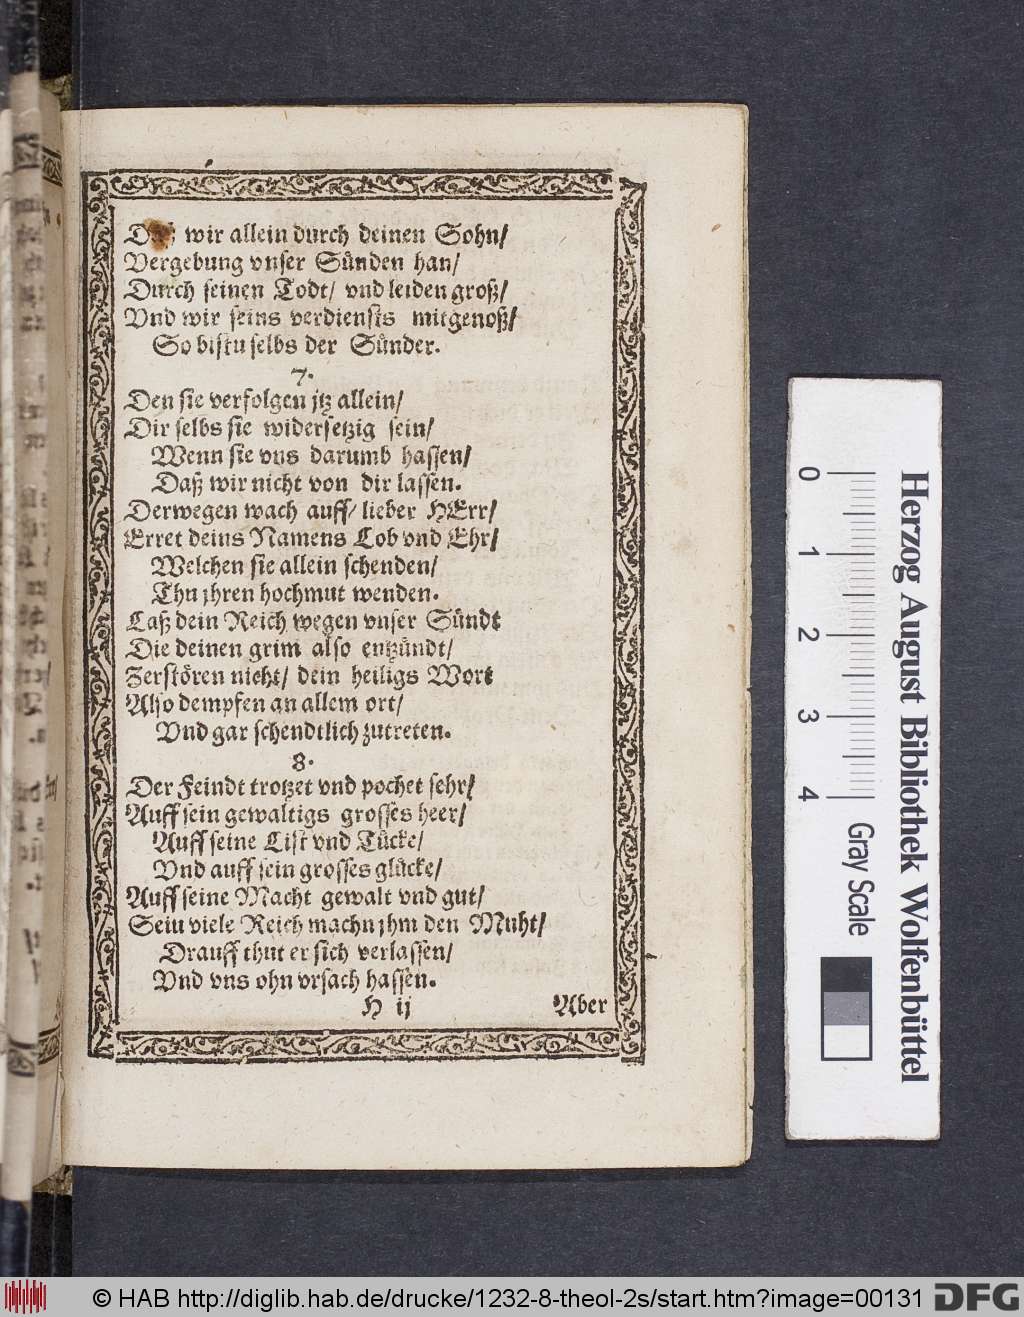 Daß wir allein durch deinen Sohn/
Vergebung vnser Sünden han/
Durch seinen Todt/ vnd leiden groß/
Vnd wir seins verdiensts mitgenoß/
So bistu selbs der Sünder.
7.
Den sie verfolgen jtz allein/
Dir selbs sie widersetzig sein/
Wenn sie vns darumb hassen/
Daß wir nicht von dir lassen.
Derwegen wach auff/ lieber HErr/
Erret deins Namens Lob vnd Ehr/
Welchen sie allein schenden/
Thu jhren hochmut wenden.
Laß dein Reich wegen vnser Sündt
Die deinen grim also entzündt/
Zerstören nicht/ dein heiligs Wort
Also dempfen an allem ort/
Vnd gar schendtlich zutreten.
8.
Der Feindt trotzet vnd pochet sehr/
Auff sein gewaltigs grosses heer/
Auff seine List vnd Tücke/
Vnd auff sein grosses glücke/
Auff seine Macht gewalt vnd gut/
Sein viele Reich machn jhm den Muht/
Drauff thut er sich verlassen/
Vnd vns ohn vrsach hassen.
H ij Aber
0 1 2 3 4 Gray Scale
Herzog August Bibliothek Wolfenbüttel
© HAB http://diglib.hab.de/drucke/1232-8-theol-2s/start.htm?image=00131 DFG